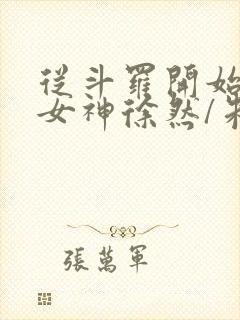 從斗羅開始
女神徐然/
張萬軍